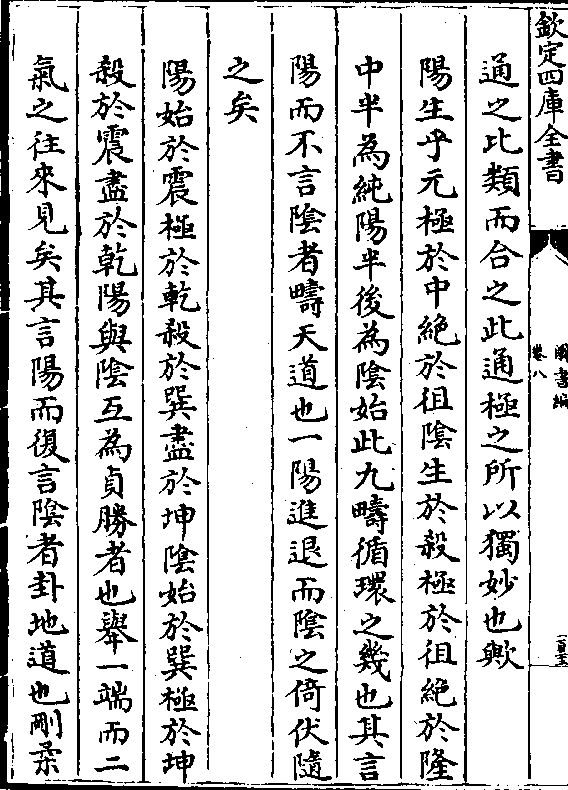 欽定四庫全書
圖書編
卷八
通之比類而合之此通極之所以獨妙也歟
陽生乎元極於中絶於徂陰生於殺極於徂絶於隆
中半為純陽半後為陰始此九疇循環之幾也其言
陽而不言陰者疇天道也一陽進退而陰之倚伏隨
之矣
陽始於震極於乾殺於巽盡於坤陰始於巽極於坤
殺於震盡於乾陽與陰互為貞勝者也舉一端而二
氣之往來見矣其言陽而復言陰者卦地道也剛柔